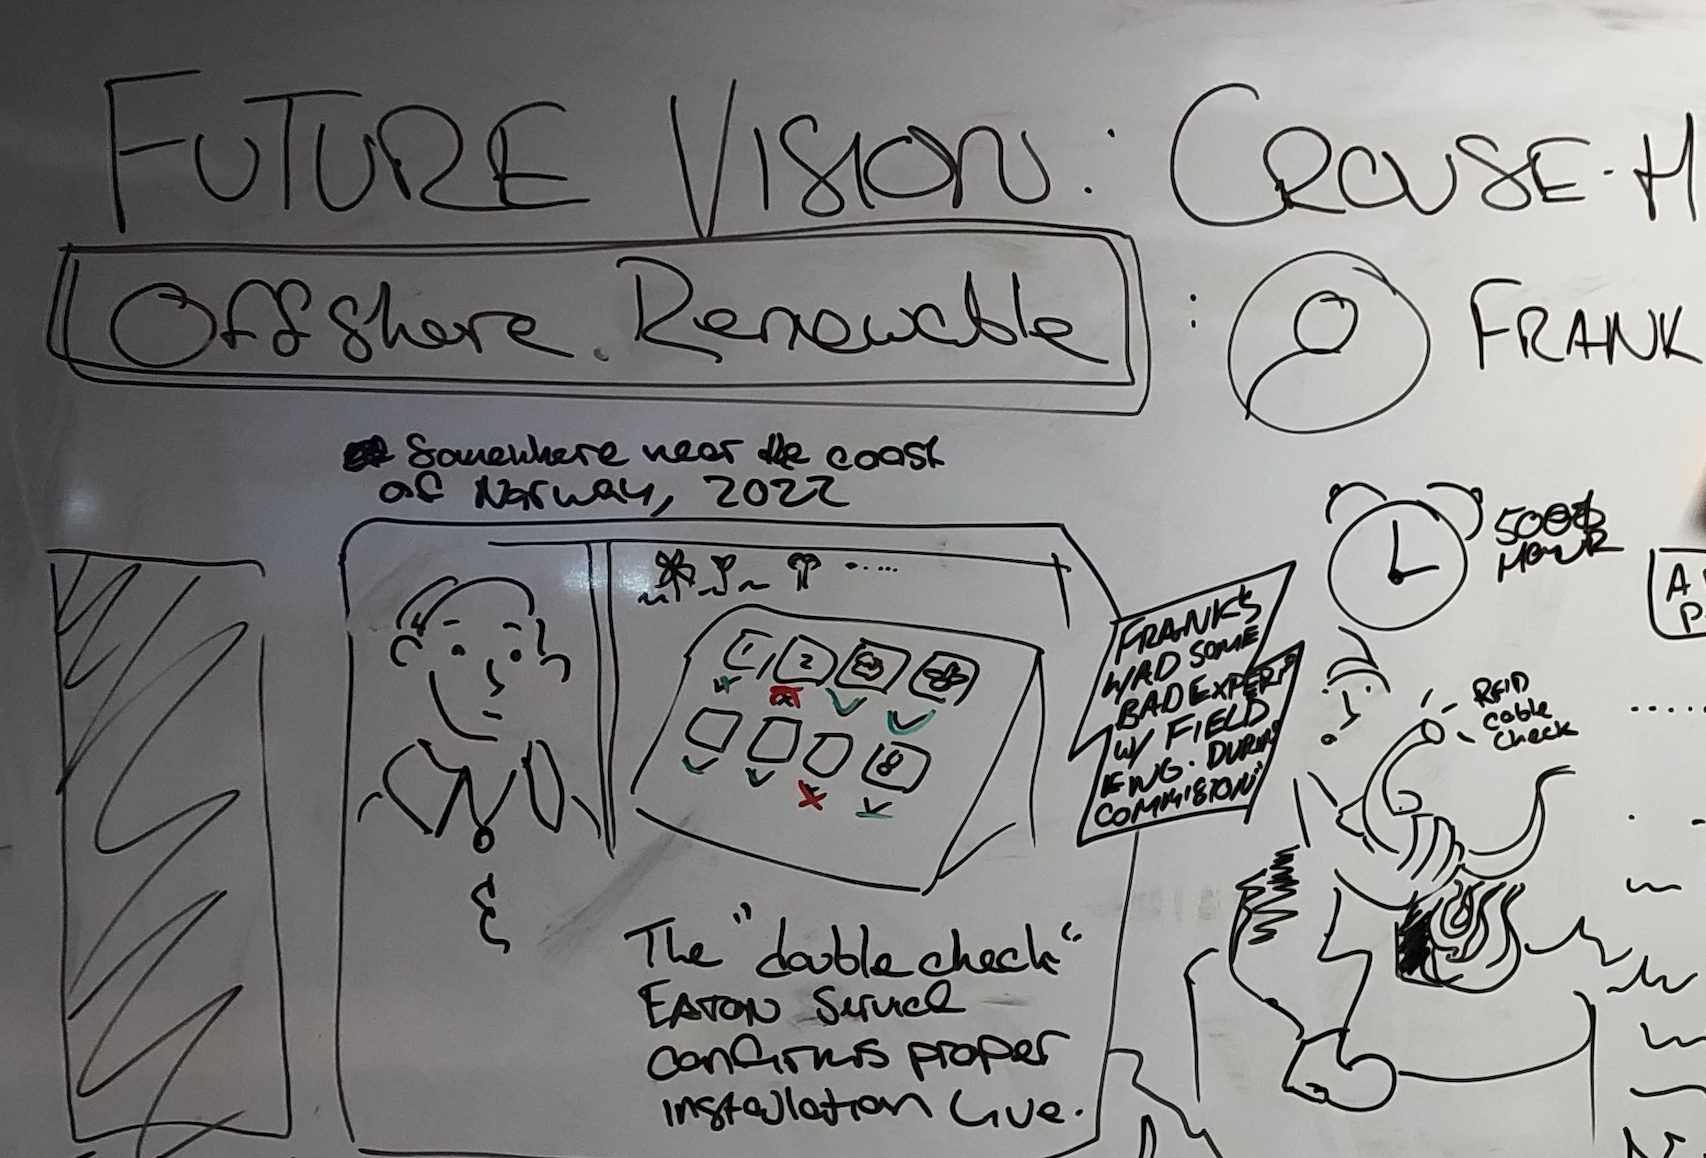 FUTURE VISION: CROUSE-H
Offshore. Renewable :
FRANK
Somewhere near the coast
of Norway, 2022
500$
HOUR
A
P.
FRANK'S
HAD SOME
BAD EXPER
W/ FIELD
ENG. DURING
COMMISION"
RFID
cable
check
1 2 3 4
8
The "double check"
EATON Service
confirms proper
installation live.